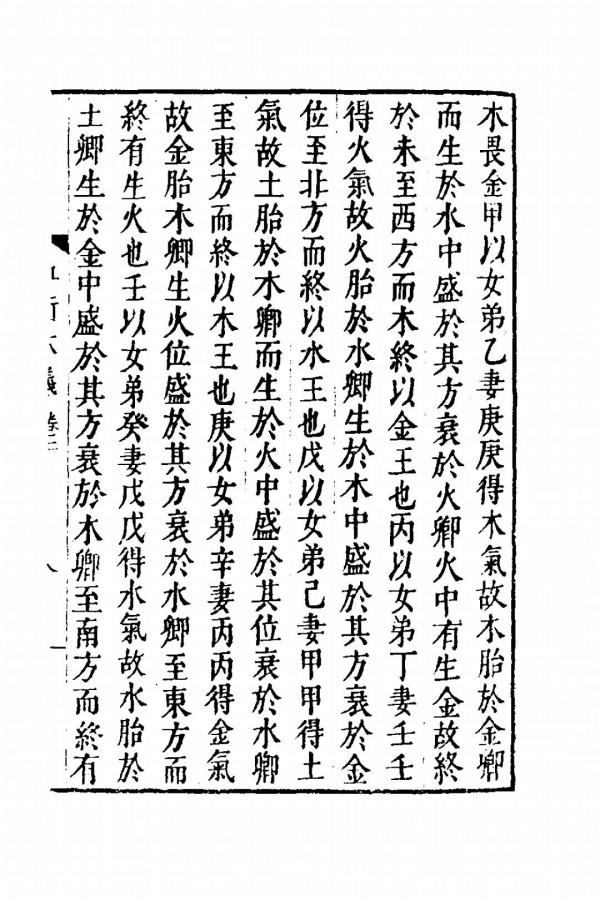 木畏金甲以女弟乙妻庚庚得木氣故木胎於金卿
而生於水中盛於其方衰於火卿火中有生金故終
於未至西方而木終以金王也丙以女弟丁妻壬壬
得火氣故火胎於水卿生於木中盛於其方衰於金
位至北方而終以水王也戊以女弟己妻甲甲得土
氣故土胎於木卿而生於火中盛於其位衰於水卿
至東方而終以木王也庚以女弟辛妻丙丙得金氣
故金胎木卿生火位盛於其方衰於水卿至東方而
終有生火也壬以女弟癸妻戊戊得水氣故水胎於
土卿生於金中盛於其方衰於木卿至南方而終有
五行大義 卷二 八